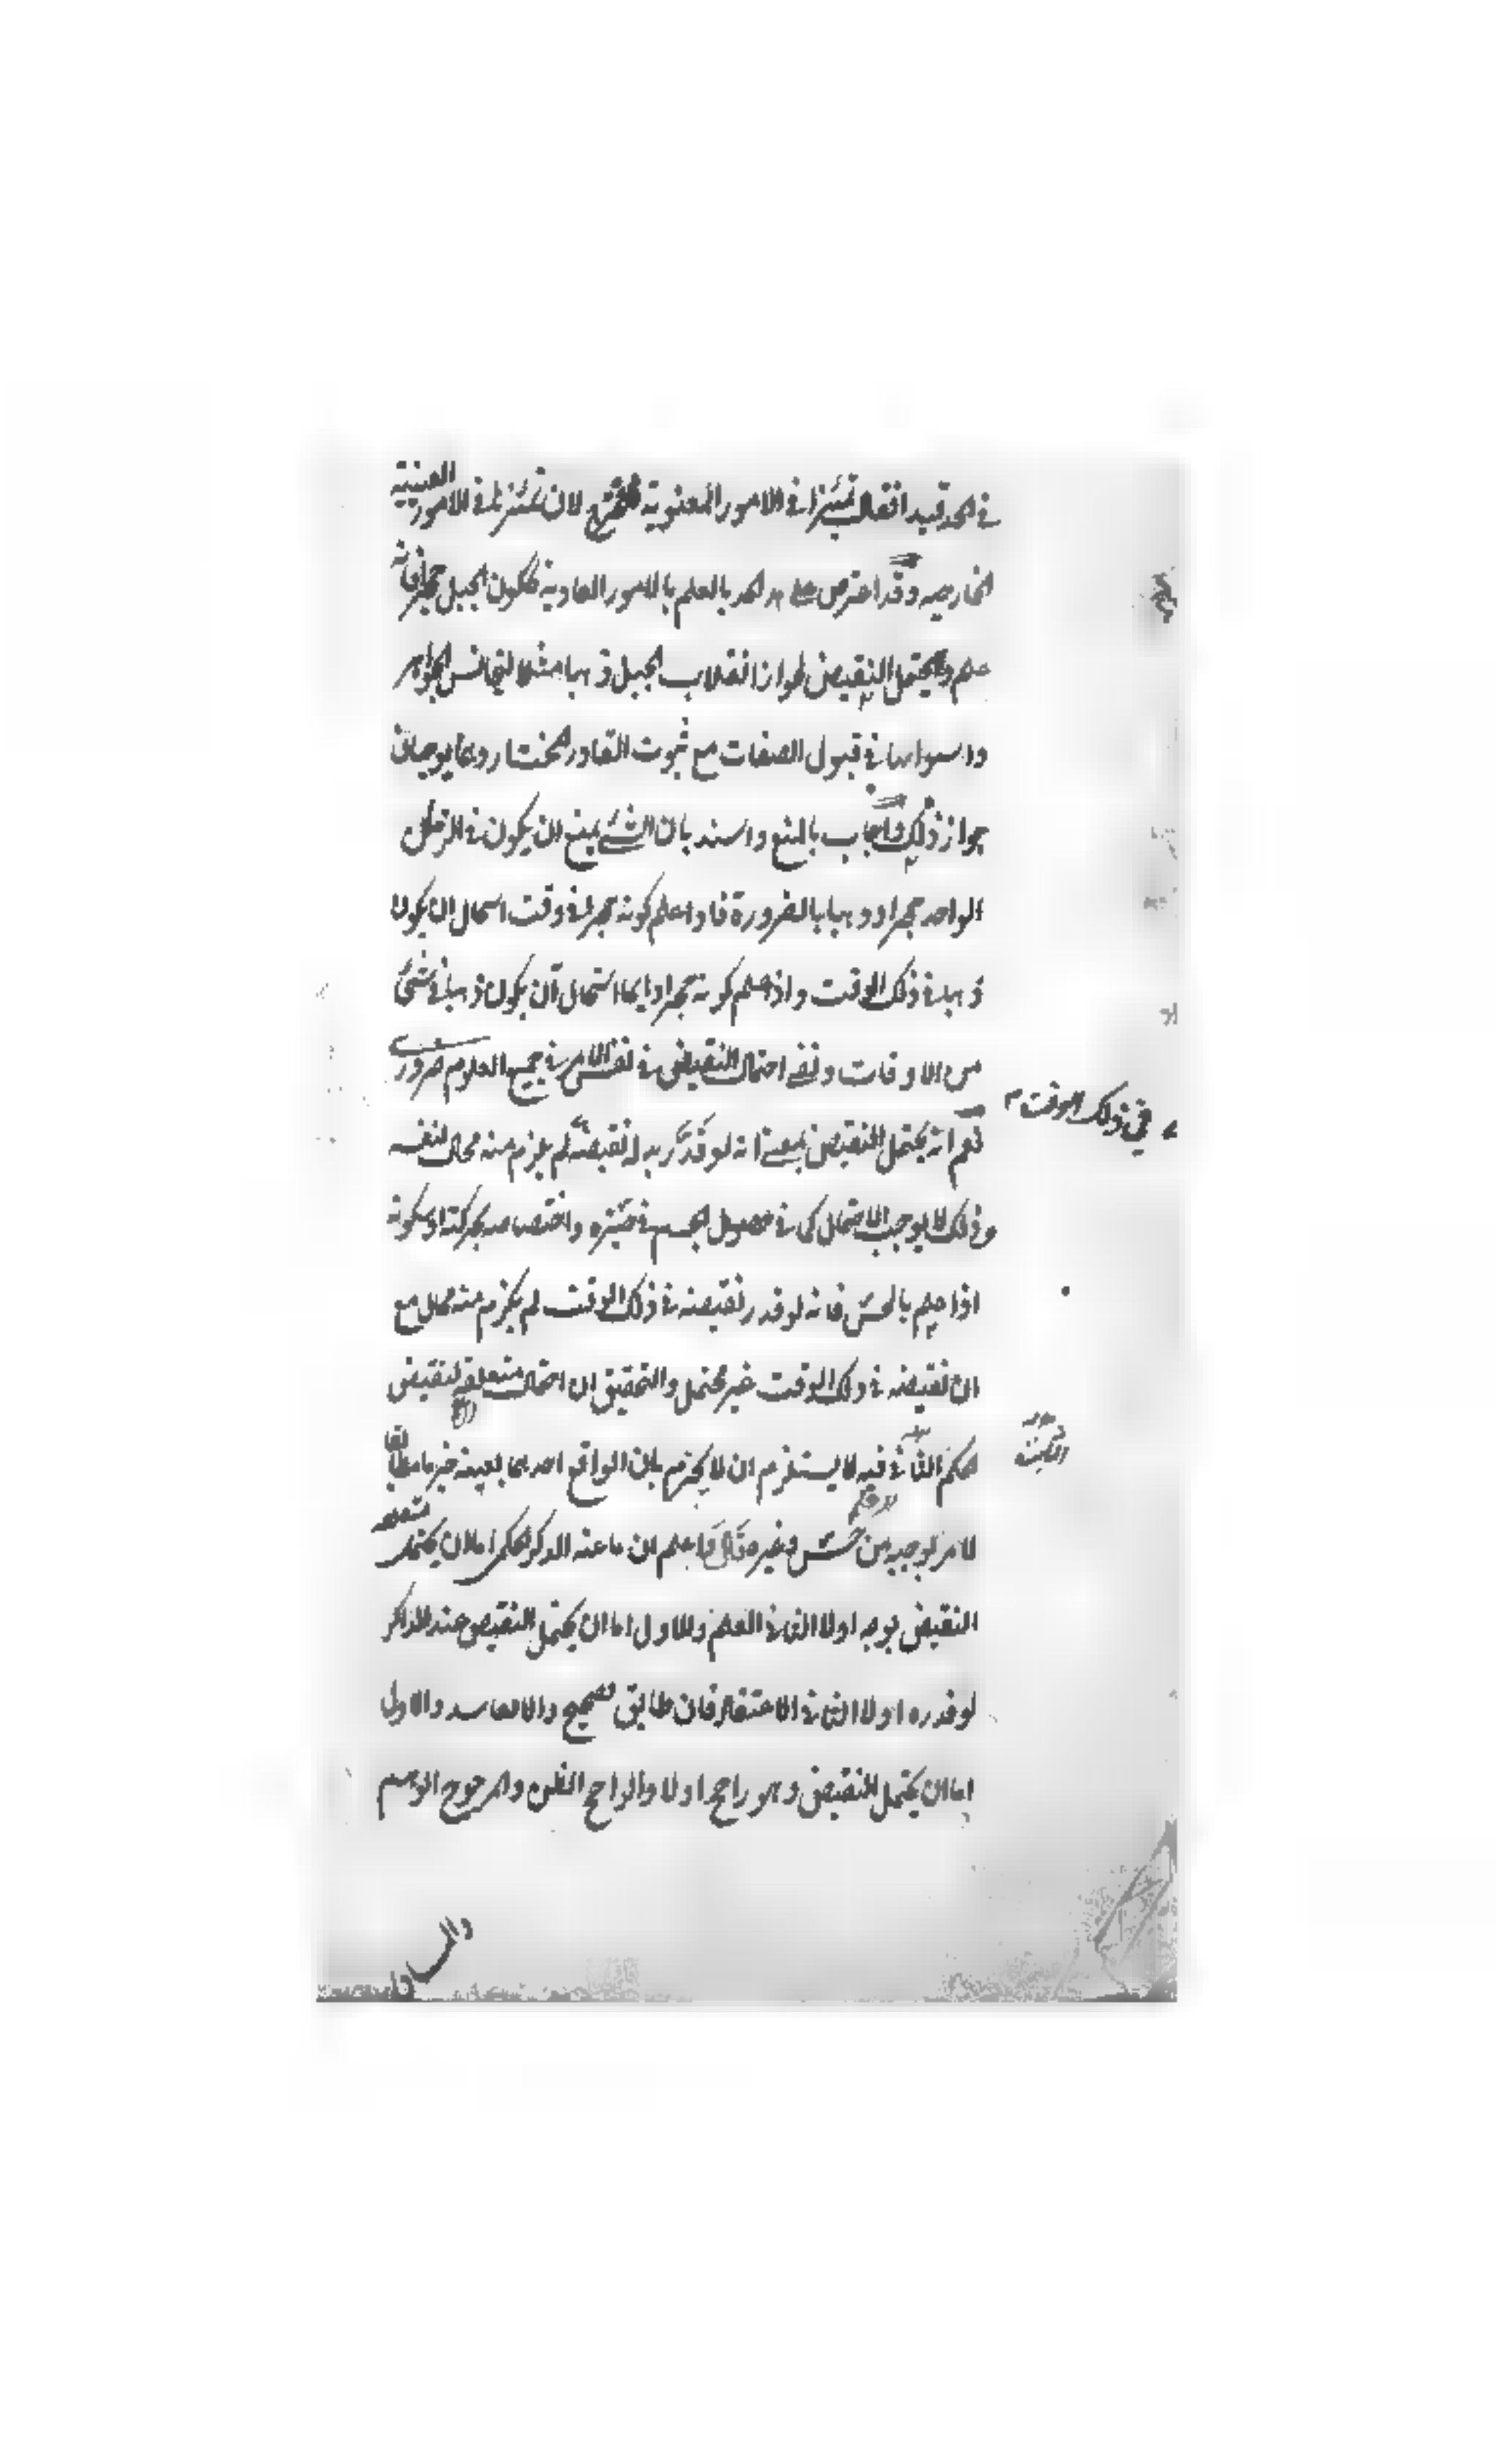 في الحد قيدا فقال تمييزا في الامور المعنوية لان تمييز في الامور العينية
الخارجيه وقد اعترض هد الحد بالعلم بالامور العادية ككون الجبل حجرا فانه
علم ويحتمل النقيض لجواز انقلاب الجبل ذهبا مثلا لتجانس الجواهر
واستوائها في قبول الصفات مع ثبوت القادر المختار وهما يوجبان
جواز ذلك واجاب بالمنع واسند بان الشئ يمتنع ان يكون في الزمان
الواحد حجرا وذهبا بالضرورة فاذا علم كونه حجرا في وقت استحال ان يكون
ذهبا في ذلك الوقت واذا علم كونه حجرا دايما استحال ان يكون ذهبا في شئ
من الاوقات ونفي احتمال النقيض في نفس الامر في جميع العلوم ضروري
في ذلك الوقت
نعم انه يحتمل النقيض بمعنى انه لو قدر بدله نقيضه لم يلزم منه محال لنفسه
وذلك لا يوجب الاحتمال كما في حصول الجسم في حيزه واختصاصه بحركته او سكونه
اذا علم بالحس فانه لو قدر نقيضه في ذلك الوقت لم يلزم منه محال مع
ان نقيضه في ذلك الوقت غير محتمل والتحقيق ان احتمال متعلقه لنقيض
الحكم الثابت فيه لا يستلزم ان لا يجزم بان الواقع احدهما بعينه جزما مطابقا
لامر يوجبه من حس وغيره قال واعلم ان ما عنه الذكر الحكمي اما ان يحتمل متعلقه
النقيض بوجه او لا الثاني العلم والاول اما ان يحتمل النقيض عند الذاكر
لو قدره او لا الثاني الاعتقاد فان طابق فصحيح والا ففاسد والاول
اما ان يحتمل النقيض وهو راجح او لا والراجح الظن والمرجوح الوهم